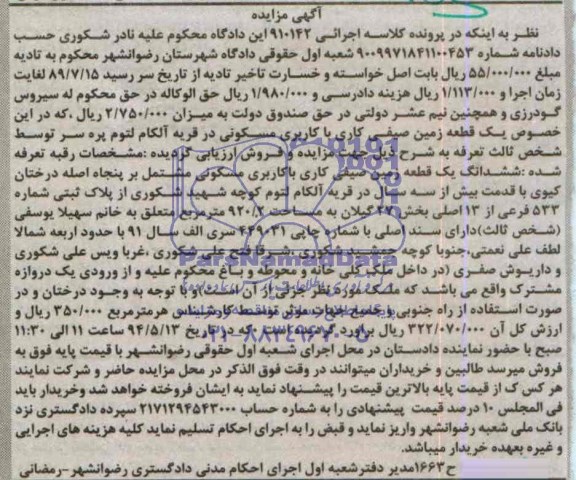 آگهی مزایده
نظر به اینکه در پرونده کلاسه اجرائی ۹۱۰۱۴۲ این دادگاه محکوم علیه نادر شکوری حسب
دادنامه شماره ۹۰۰۹۹۷۱۸۴۱۱۰۰۴۵۳ شعبه اول حقوقی دادگاه شهرستان رضوانشهر محکوم به تادیه
مبلغ ۵۵/۰۰۰/۰۰۰ ریال بابت اصل خواسته و خسارت تاخیر تادیه از تاریخ سر رسید ۸۹/۷/۱۵ لغایت
زمان اجرا و ۱/۱۱۳/۰۰۰ ریال هزینه دادرسی و ۱/۹۸۰/۰۰۰ ریال حق الوکاله در حق محکوم له سیروس
گودرزی و همچنین نیم عشر دولتی در حق صندوق دولت به میزان ۲/۷۵۰/۰۰۰ ریال ،که در این
خصوص یک قطعه زمین صیفی کاری با کاربری مسکونی در قریه آلکام لتوم پره سر توسط
شخص ثالث تعرفه به شرح ذیل جهت مزایده و فروش ارزیابی گردیده :مشخصات رقبه تعرفه
شده :ششدانگ یک قطعه زمین صیفی کاری باکاربری مسکونی مشتمل بر پنجاه اصله درختان
کیوی با قدمت بیش از سه سال در قریه آلکام لتوم کوچه شهید شکوری از پلاک ثبتی شماره
۵۳۳ فرعی از ۱۳ اصلی بخش ۲۷ گیلان به مساحت ۹۲۰/۲ مترمربع متعلق به خانم سهیلا یوسفی
(شخص ثالث)دارای سند اصلی با شماره چاپی ۴۳۹۰۳۱ سری الف سال ۹۱ با حدود اربعه شمالا
لطف علی نعمتی،جنوبا کوچه جمشید شکوری ،شرقا فتح علی شکوری ،غربا ویس علی شکوری
و داریوش صفری (در داخل ملک کلی خانه و محوطه و باغ محکوم علیه و از ورودی یک دروازه
مشترک واقع می باشد که ملک مورد نظر جزئی از آن است)و با توجه به وجود درختان و در
صورت استفاده از راه جنوبی و جمیع جهات موثر توسط کارشناس هرمترمربع ۳۵۰/۰۰۰ ریال و
ارزش کل آن ۳۲۲/۰۷۰/۰۰۰ ریال براورد گردیده است .که در تاریخ ۹۴/۵/۱۳ ساعت ۱۱ الی ۱۱:۳۰
صبح با حضور نماینده دادستان در محل اجرای شعبه اول حقوقی رضوانشهر با قیمت پایه فوق به
فروش میرسد طالبین و خریداران میتوانند در وقت فوق الذکر در محل مزایده حاضر و شرکت نمایند
هر کس ک از قیمت پایه بالاترین قیمت را پیشنهاد نماید به ایشان فروخته خواهد شد وخریدار باید
فی المجلس ۱۰ درصد قیمت پیشنهادی را به شماره حساب ۲۱۷۱۲۹۴۵۴۳۰۰۰ سپرده دادگستری نزد
بانک ملی شعبه رضوانشهر واریز نماید و قبض را به اجرای احکام تسلیم نماید کلیه هزینه های اجرایی
و غیره بعهده خریدار میباشد.
ح۱۶۶۳مدیر دفترشعبه اول اجرای احکام مدنی دادگستری رضوانشهر-رمضانی
ParsNamadData
۰۲۱-۸۸۳۴۹۶۷۰-۵